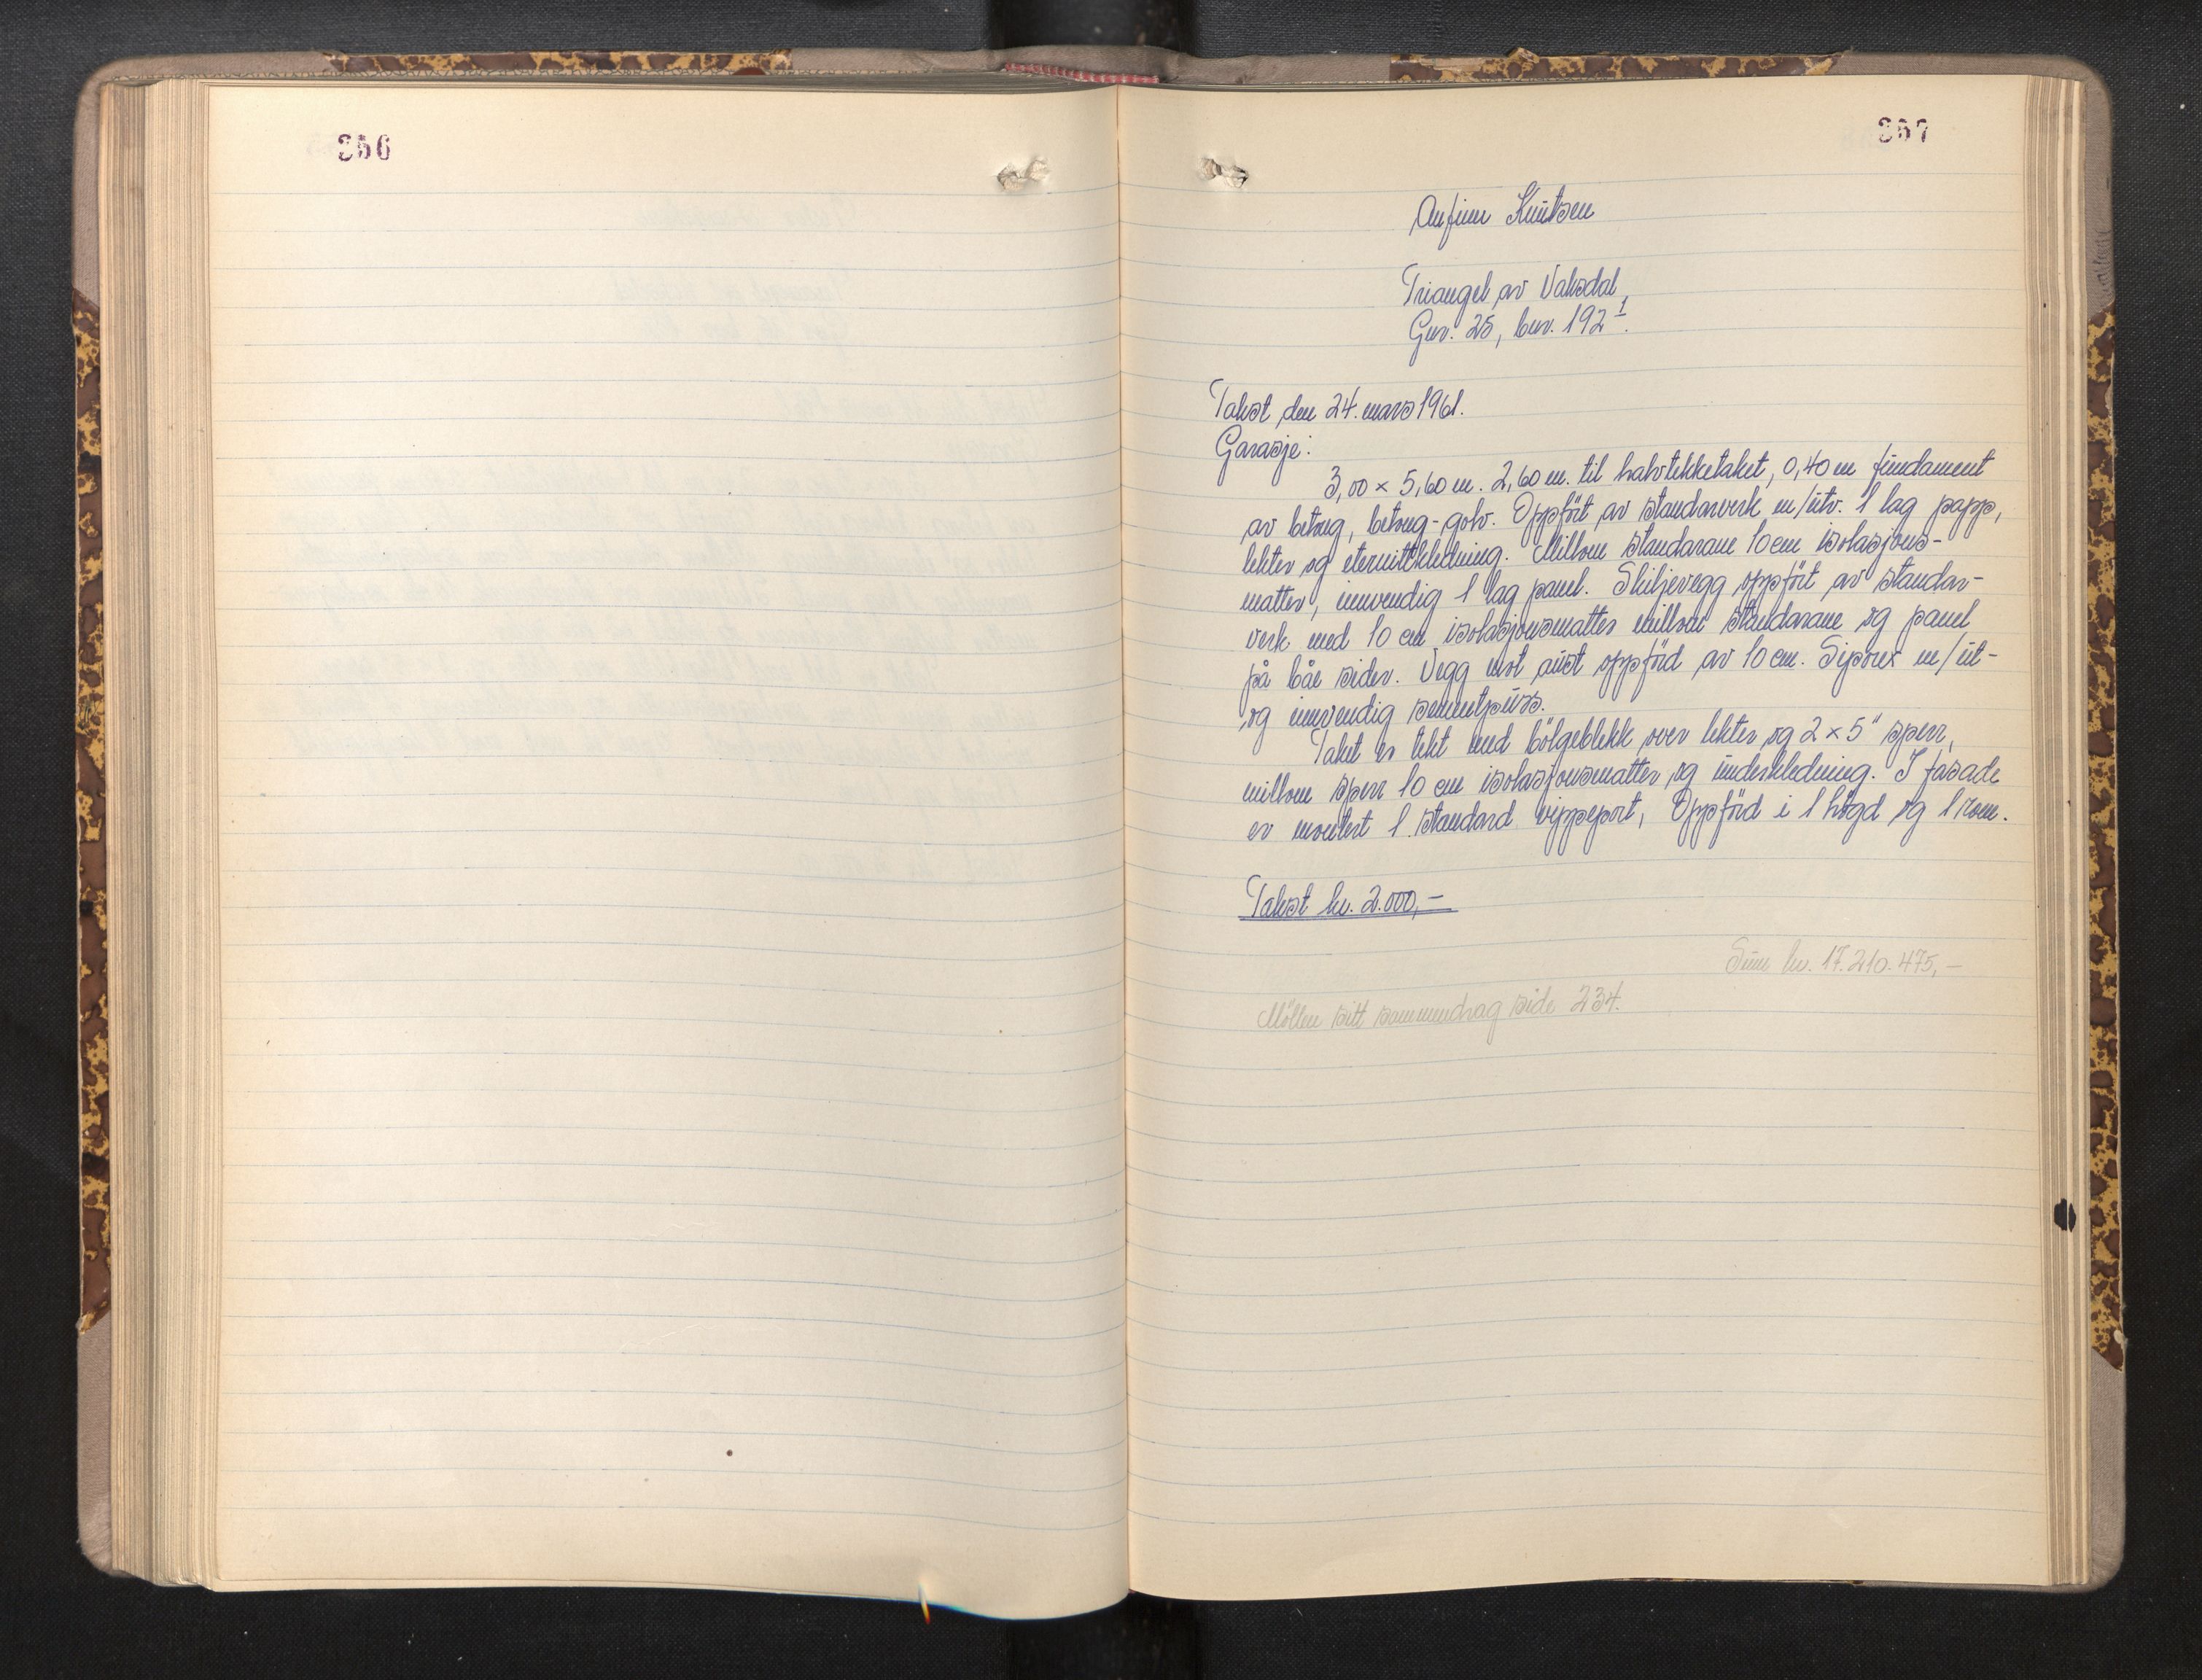 356
357
Anfinn Knutsen
Triangel av Vaksdal,
Gnr. 25, bnr. 192¹.
Takst den 24. mars 1961.
Garasje:
3,00 x 5,60 m. 2,60 m. til halvtekketaket, 0,40 m fundament
av betong, betong-golv. Oppfört av standarverk m/utv. 1 lag papp,
lekter og eternittkledning. Millom standarane 10 cm isolasjons-
matter, innvendig 1 lag panel. Skiljevegg oppfört av standar-
verk med 10 cm isolasjonsmatter millom standarane og panel
på båe sider. Vegg mot aust oppförd av 10 cm. Siporex m/ut-
og innvendig sementpuss.
Taket er tekt med bölgeblekk over lekter og 2 x 5" sperr,
millom sperr 10 cm isolasjonsmatter og underkledning. I fasade
er montert 1. standard vippeport, Oppförd i 1 högd og 1 rom.
Takst kr. 2.000,-
Sum kr. 17.210.475,-
Möllen sitt sammendrag side 234.